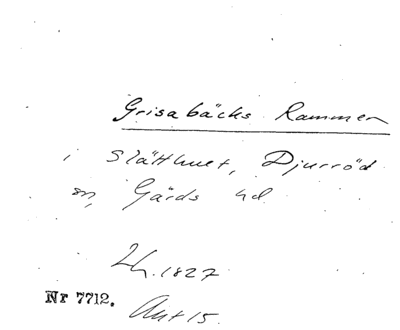 Grisabäcks Rammen
i Slätthuet, Djurröd
sn, Gärds hd.
Lh. 1827
Nr 7712.
Akt 15.